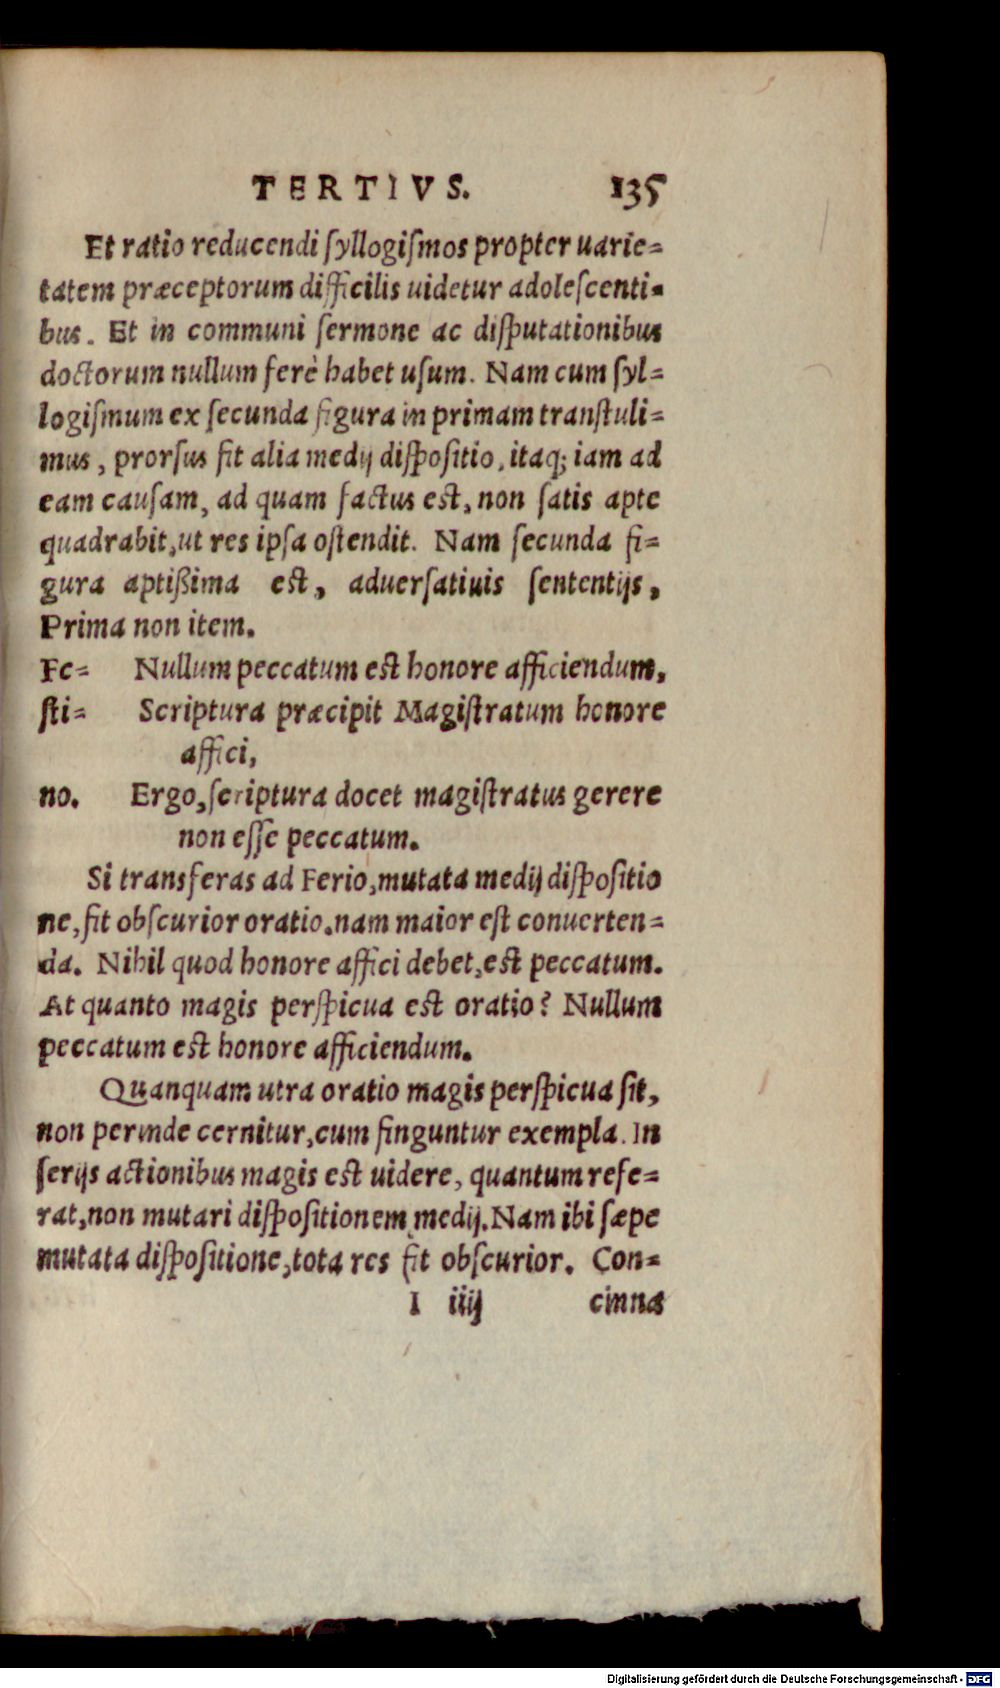 TERTIVS. 135
Et ratio reducendi ſyllogiſmos propter uarie=
tatem præceptorum difficilis uidetur adoleſcenti=
bus. Et in communi ſermone ac diſputationibus
doctorum nullum ferè habet uſum. Nam cum ſyl=
logiſmum ex ſecunda figura in primam tranſtuli=
mus, prorſus fit alia medij diſpoſitio, itaq; iam ad
eam cauſam, ad quam factus eſt, non ſatis apte
quadrabit, ut res ipſa oſtendit. Nam ſecunda fi=
gura aptißima eſt, aduerſatiuis ſententijs,
Prima non item.
Fe= Nullum peccatum eſt honore afficiendum,
ſti= Scriptura præcipit Magiſtratum honore
affici,
no. Ergo, ſcriptura docet magiſtratus gerere
non eſſe peccatum.
Si transferas ad Ferio, mutata medij diſpoſitio
ne, fit obſcurior oratio. nam maior eſt conuerten=
da. Nihil quod honore affici debet, eſt peccatum.
At quanto magis perſpicua eſt oratio? Nullum
peccatum eſt honore afficiendum.
Quanquam utra oratio magis perſpicua ſit,
non perinde cernitur, cum finguntur exempla. In
ſerijs actionibus magis eſt uidere, quantum refe=
rat, non mutari diſpoſitionem medij. Nam ibi ſæpe
mutata diſpoſitione, tota res fit obſcurior. Con=
I iiij cinna
Digitalisierung gefördert durch die Deutsche Forschungsgemeinschaft - DFG